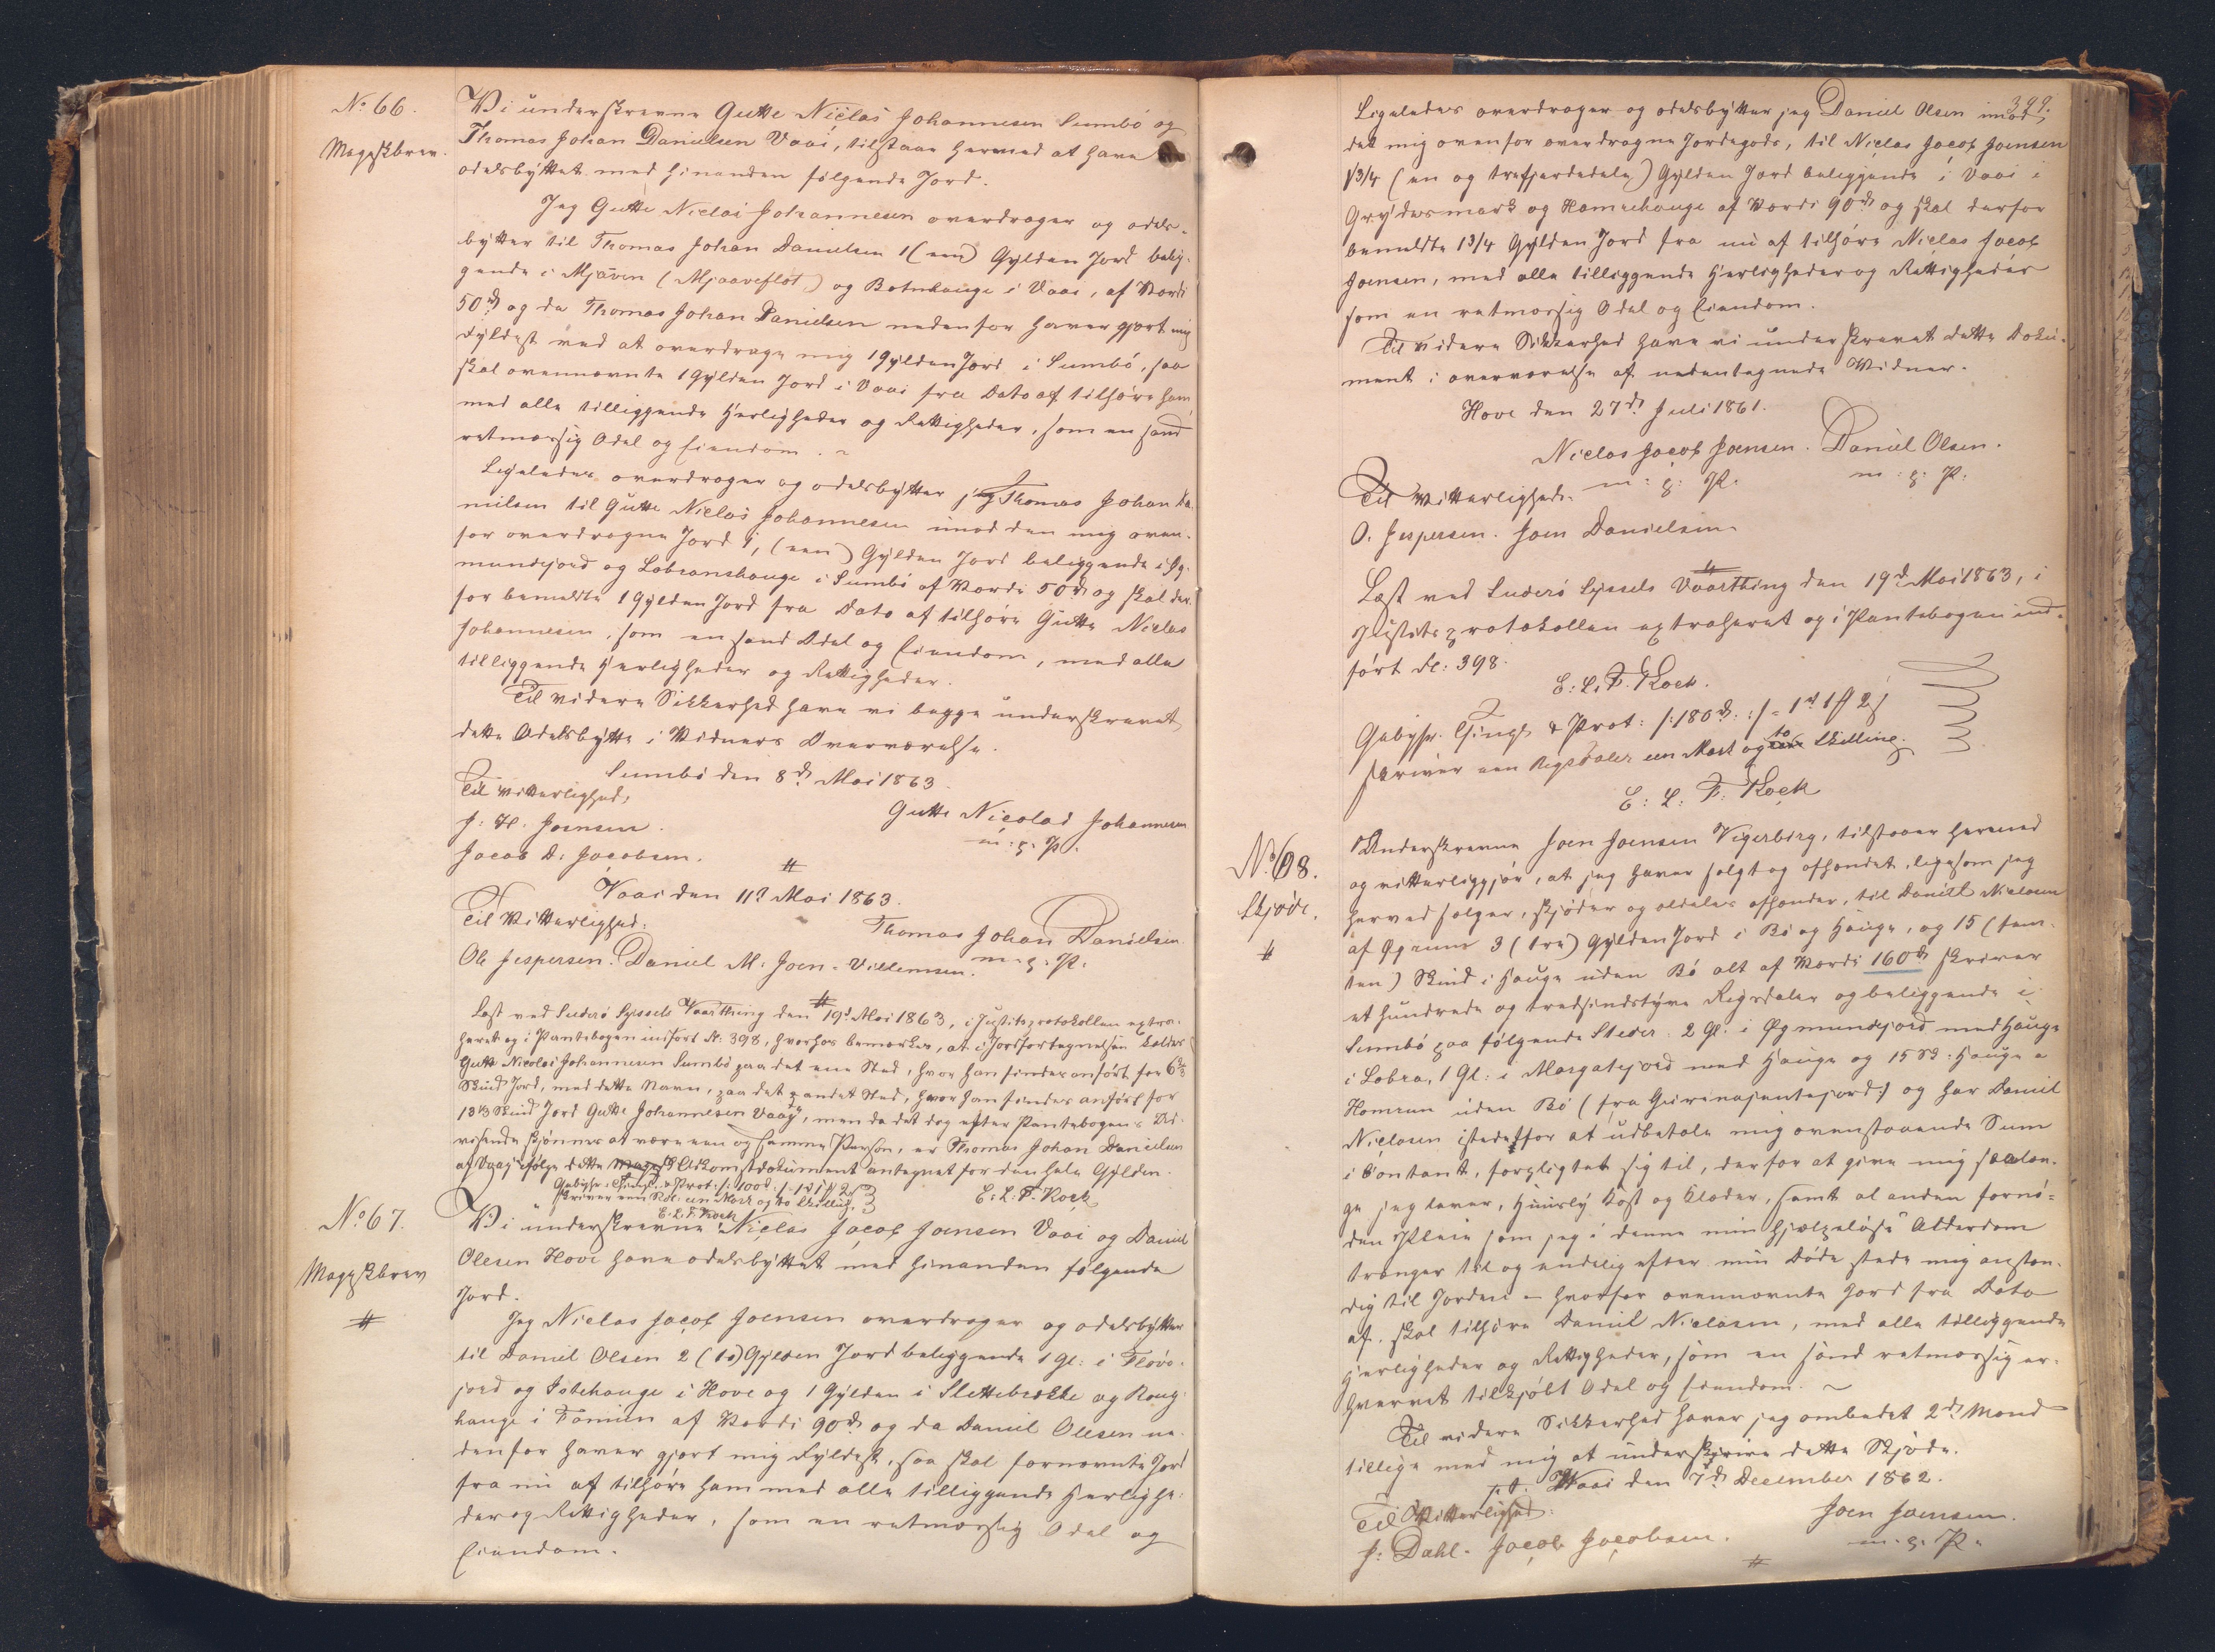 No 66.
Mageskbrev.
Vi underskrevne Gutte Niclas Johannesen Sumbö og
Thomas Johan Danielsen Vaai, tilstaae herved at have
odelsbyttet med hinanden følgende Jord.
Jeg Gutte Niclai Johannesen overdrager og odels-
bytter til Thomas Johan Danielsen 1 (een) Gylden Jord belig-
gende i Mjäven (Mjaaveflöt) og Botnhauge i Vaai, af Værdi
50 rd og da Thomas Johan Danielsen nedenfor haver gjort mig
Fyldest ved at overdrage mig 1 Gylden Jord i Sumbö, saa
skal ovennævnte 1 Gylden Jord i Vaai fra Dato af tilhøre ham
med alle tilliggende Herligheder og Rettigheder, som en sand
retmæssig Odel og Eiendom.
Ligeledes overdrager og odelsbytter jeg Thomas Johan Da-
nielsen til Gutte Niclas Johannesen imod den mig oven-
for overdragne Jord 1, (een) Gylden Jord beliggende i Øg-
mundsjord og Lobranshauge i Sumbö af Værdi 50 rd og skal der-
for bemeldte 1 Gylden Jord fra Dato af tilhøre Gutte Niclas
Johannesen, som en sand Odel og Eiendom, med alle
tilliggende Herligheder og Rettigheder.
Til videre Sikkerhed have vi begge underskrevet
dette Odelsbytte i Vidners Overværelse.
Sumbö den 8d Mai 1863.
Til Vitterlighed,
J. H. Joensen.
Jacob D: Jacobsen.
Gutte Nicolai Johannesen
m: p: P.
Vaai den 11d Mai 1863.
Til Vitterlighed:
Thomas Johan Danielsen
m: p: P.
Ole Jespersen. Daniel M. Joen-Villemsen.
Læst ved Suderö Syssels Vaarthing den 19d Mai 1863, i Justitsprotokollen extra-
heret og i Pantebogen indført Fol: 398, hvorhos bemærkes, at i Jordfortegnelsen kaldes
Gutte Nicolai Johannesen Sumbö paa det ene Sted, hvor han findes anført for 6 2/3
Skind Jord, med dette Navn, paa det andet Sted, hvor han findes anført for
13 1/3 Skind Jord "Gutte Johannesen Vaag", men da det dog efter Pantebogens Ud-
visende skjønnes at være een og samme Person, er Thomas Johan Danielsen
af Vaag ifølge dette Adkomstdokument antegnet for den hele Gylden.
Gebyhr: Thingl: & Prot: /: 100 rd: /: 1 rd 1 # 2 s
skriver een Rdl: een Mark og to Skilling.
E: L: F: Koch
E. L. F. Koch
No 67.
Mageskbrev
Vi underskrevne Niclas Jacob Joensen Vaai og Daniel
Olesen Hove have odelsbyttet med hinanden følgende
Jord.
Jeg Niclas Jacob Joensen overdrager og odelsbytter
til Daniel Olsen 2 (to) Gylden Jord beliggende 1 Gl: i Flöve-
jord og Istehauge i Hove og 1 Gylden i Slettebrekke og Raug-
hauge i Famien af Værdi 90 rd og da Daniel Olesen ne-
denfor haver gjort mig Fyldest, saa skal fornævnte Jord
fra nu af tilhøre ham med alle tilliggende Herlighe-
der og Rettigheder, som en retmæssig Odel og
Eiendom.
399.
Ligeledes overdrager og odelsbytter jeg Daniel Olsen imod
det mig ovenfor overdragne Jordegods, til Niclas Jacob Joensen
1 3/4 (en og trefjerdedele) Gylden Jord beliggende i Vaai i
Grydesmark og Hamrehauge af Værdi 90 rd og skal derfor
bemeldte 1 3/4 Gylden Jord fra nu af tilhøre Niclas Jacob
Joensen, med alle tilliggende Herligheder og Rettigheder
som en retmæssig Odel og Eiendom.
Til videre Sikkerhed have vi underskrevet dette Doku-
ment i overværelse af nedentegnede Vidner.
Hove den 27d Juli 1861.
Niclas Jacob Joensen. Daniel Olsen.
m: p: P. m: p: P.
Til Vitterlighed.
O. Jespersen. Joen Danielsen.
Læst ved Suderö Syssels Vaarthing den 19d Mai 1863, i
Justitsprotokollen extraheret og i Pantebogen ind-
ført Fol: 398.
E: L. F. Koch.
Gebyhr. Thingl & Prot: /: 180 rd: :/ = 1 rd 1 # 2 s
skriver een Rigsdaler een Mark og to Skilling.
E: L: F. Koch
No 68.
Skjøde.
Underskrevne Joen Joensen Vigerbirg, tilstaaer herved
og vitterliggjør, at jeg haver solgt og afhændet, ligesom jeg
herved sælger, skjøder og aldeles afhænder, til Daniel Niclasen
af Øgrum 3 (tre) Gylden Jord i Bö og Hauge, og 15 (fem-
ten) Skind i Hauge uden Bö alt af Værdi 160 rd skriver
et hundrede og tredsindstyve Rigsdaler og beliggende i
Sumbö paa følgende Steder: 2 Gl. i Øgmundsjord med Hauge
i Lobra, 1 Gl: i Margatejord med Hauge og 15 Sk: Hauge a
Hamrun uden Bö (fra Guvinajentejord) og har Daniel
Niclasen istedetfor at udbetale mig ovenstaaende Sum
i Contant, forpligtet sig til, derfor at give mig saalæn-
ge jeg lever, Huusly Kost og Klæder, samt al anden fornö-
den Pleie som jeg i denne min hjælpelöse Alderdom
trænger til og endelig efter min Døde stede mig anstæn-
dig til Jorden - hvorfor ovennævnte Jord fra Dato
af skal tilhøre Daniel Niclasen, med alle tilliggende
Herligheder og Rettigheder, som en sand retmæssig er-
hvervet tilkjøbt Odel og Eiendom.
Til videre Sikkerhed haver jeg ombedet 2de Mænd
tillige med mig at underskrive dette Skjøde.
p. t. Vaai den 7d December 1862.
Til Vitterlighed:
Joen Joensen.
m: p: P.
J: Dahl. Jacob Jacobsen.